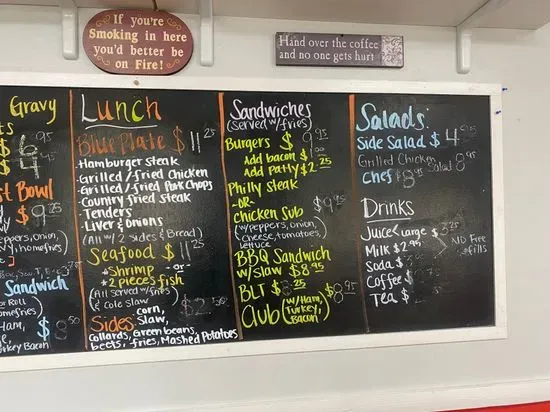 If you're
Smoking in here
you'd better be
on Fire!
Hand over the coffee
and no one gets hurt
Gravy
$ 6.95
$ 4
Bowl
$ 9.25
Peppers, onion,
w/ homefries
Sandwich
or Roll
homefries
Ham,
$ 8.50
Turkey Bacon
Lunch
Blue Plate $ 11.25
-Hamburger steak
-Grilled/fried Chicken
-Grilled/fried Pork Chops
-Country fried steak
-Tenders
-Liver & onions
(All w/ 2 sides & Bread)
Seafood $ 11.25
*Shrimp -or-
*2 pieces fish
(All served w/ fries)
& Cole Slaw
Sides: corn,
slaw,
collards, Green beans,
beets, fries, Mashed Potatoes
Sandwiches
(served w/ fries)
Burgers $
Add bacon $
Add patty $2.25
Philly steak
-OR-
Chicken Sub
(w/ peppers, onion,
cheese, tomatoes,
lettuce
BBQ Sandwich
w/ slaw $8.95
BLT $ .25
Club (w/ Ham,
Turkey,
Bacon) $8.95
Salads:
Side Salad $ 4
Grilled Chicken Salad 8.95
Chef $8.95
Drinks
Juice<Large $3.25
Milk $2.95
NO Free
refills
Soda $
Coffee $
Tea $